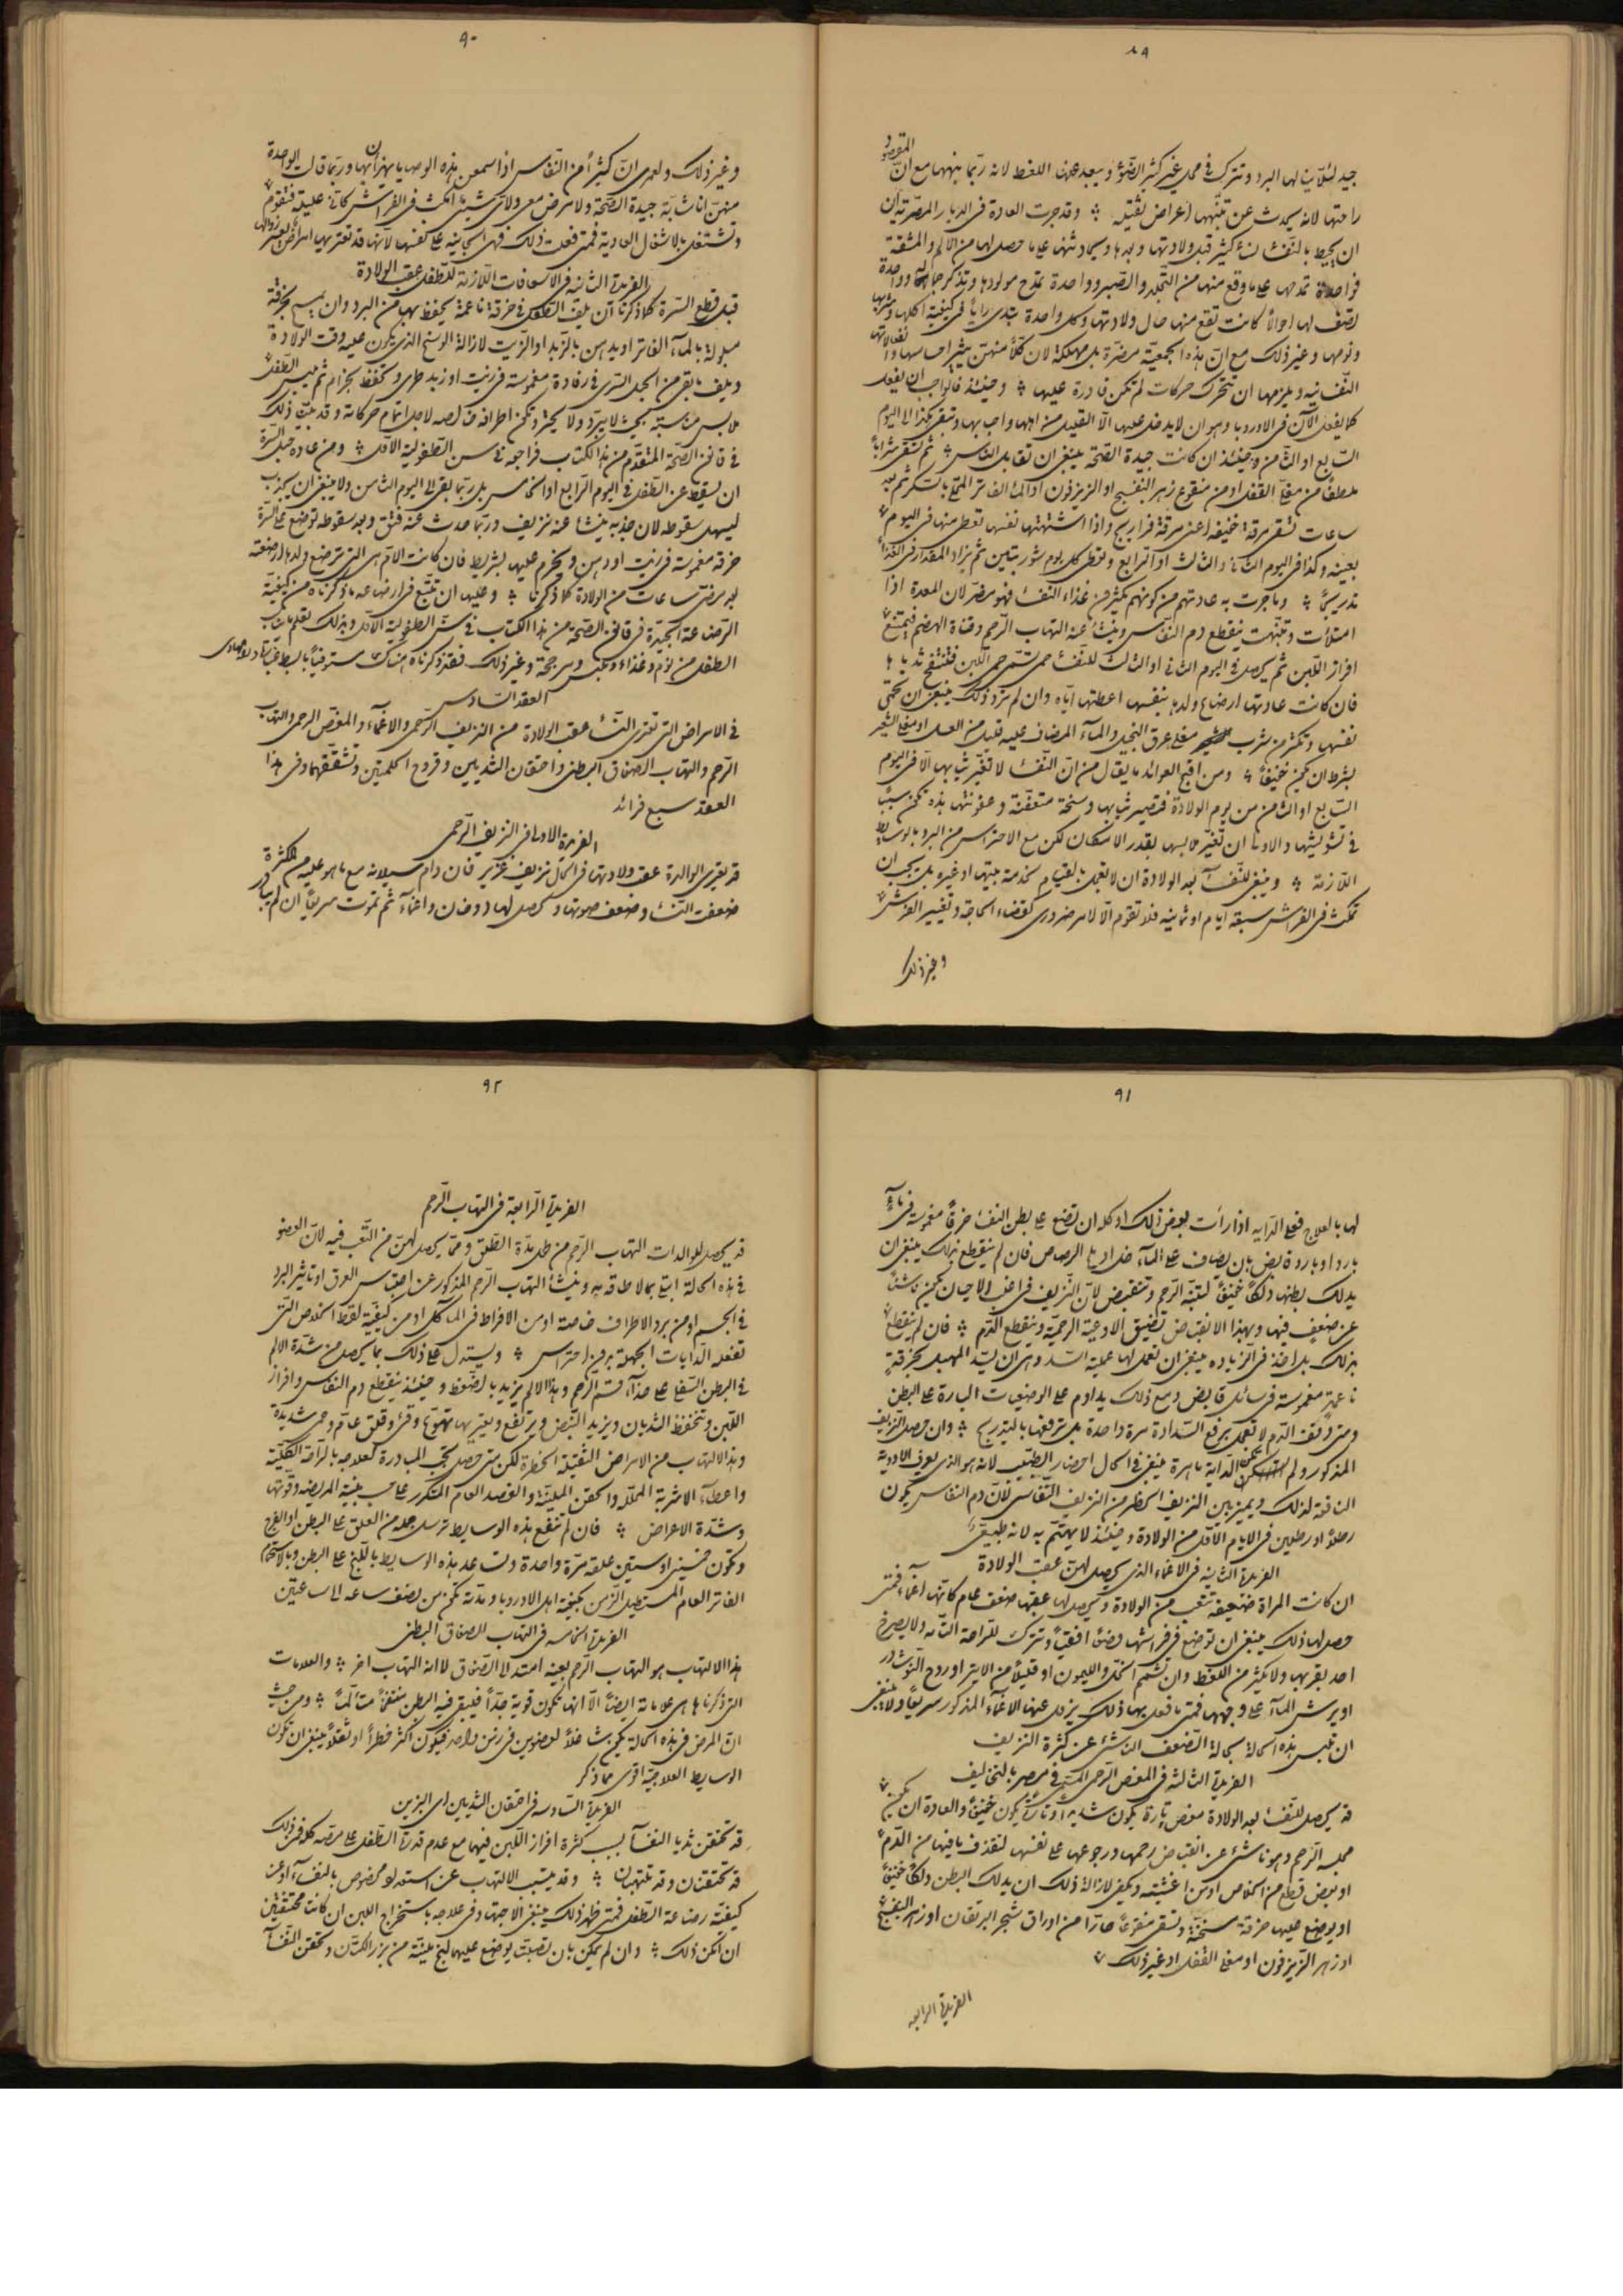 ٨٩
جيد لئلا ينالها البرد وتترك في محل غير كثير الضوء ويبعد عنها اللغط لانه ربما ينبهها مع ان المقصود
راحتها لانه يحدث عن تنبهها اعراض ثقيله وقد جرت العادة في الديار المصرية ان
ان يحيط بالنفسا نساء كثير قبل ولادتها وبعدها ويحادثنها على ما حصل لها من الالم والمشقة
فواحدة تمدحها على ما وقع منها من التجلد والصبر وواحدة تمدح مولودها وتذكر جماله وواحدة
تصف لها احوالا كانت تقع منها حال ولادتها وكل واحدة تبدى رأيا في كيفية اكلها وشربها
ونومها وغير ذلك مع ان هذه الجمعية مضرة بل مهلكة لان كلا منهن يثير احساسها وانفعالاتها
النفسانيه ويلزمها ان تتحرك حركات لم تكن قادرة عليها وحينئذ فالواجب ان يفعل
كما يفعل الآن في الاوروبا وهو ان لا يدخل عليها الا القليل من اهلها واحبابها وتبقى هكذا الى اليوم
السابع او الثامن وحينئذ ان كانت جيدة الصحة ينبغي ان تقابل الناس ثم تسقى شرابا
ملطفا من مغلى القفل او من منقوع زهر البنفسج او الزيزفون او الماء الفاتر المحلى بالسكر ثم بعد
ساعات تسقى مرقة خفيفه اعنى مرقة فراريج واذا اشتهتها نفسها تعطى منها في اليوم
بعينه وكذا في اليوم الثاني والثالث او الرابع وتعطى كل يوم شوربتين ثم يزاد المقدار في الغذاء
تدريجا وما جرت به عادتهم من كونهم يكثرون غذاء النفسا فهو مضر لان المعدة اذا
امتلأت وتنبهت ينقطع دم النفاس وينشأ عنه التهاب الرحم وقناة الهضم فيمتنع
افراز اللبن ثم يحصل في اليوم الثاني او الثالث للنفسا حمى تسمى حمى اللبن فتنتفخ ثدياها
فان كانت عادتها ارضاع ولدها بنفسها اعطتها اياه وان لم ترد ذلك ينبغي ان تحمى
نفسها وتكثر من شرب مغلى عرق النجيل والماء المضاف عليه قليل من العسل او مغلى الشعير
بشرط ان يكون خفيفا ومن اقبح العوائد ما يقال من ان النفسا لا تغير ثيابها الا في اليوم
السابع او الثامن من يوم الولادة فتصير ثيابها وسخة متعفنة وعفونتها هذه تكون سببا
في تشويشها والاولى ان تغير ملابسها بقدر الامكان لكن مع الاحتراس من البرد بالوسايط
اللازمة وينبغي للنفسا بعد الولادة ان لا تعجل بالقيام لخدمة بيتها او غيره بل يجب ان
تمكث في الفراش سبعة ايام او ثمانية فلا تقوم الا لامر ضرورى كقضاء الحاجة وتغيير الفرش
وغير ذلك
٩٠
وغير ذلك ولعمرى ان كثيرا من النفاس اذا سمعن هذه الوصايا يهزأن بها وربما قالت الواحدة
منهن انا شابة جيدة الصحة ولا مرض معى ولاى شيئ امكث في الفراش كأنى عليلة فتقوم
وتشتغل بالاشغال العادية فمتى فعلت ذلك فهى الجانيه على نفسها لانها قد تعتريها امراض يعسر زوالها
الفريدة الثانية في الاسعافات اللازمة للطفل عقب الولادة
قبل قطع السرة كما ذكرنا ان يلف الطفل في خرقة ناعمة يحفظ بها من البرد وان يمسح بخرقة
مبلولة بالماء الفاتر او يدهن بالزبد او الزيت لازالة الوسخ الذى يكون عليه وقت الولادة
ويلف ما بقى من الحبل السرى في رفادة مغموسة في زيت او زبد طرى وتحفظ بحزام ثم يلبس الطفل
ملابس مناسبة بحيث لا يبرد ولا يحتر وتكون اطرافه خالصه لاجل اتمام حركاته وقد بينا ذلك
في قانون الصحة المتقدم من هذا الكتاب فراجعه في سن الطفولية الاول ومن عادة حبل السرة
ان يسقط عن الطفل في اليوم الرابع او الخامس بل ربما بقى الى اليوم الثامن ولا ينبغي ان يجذب
ليسهل سقوطه لان جذبه ينشأ عنه نزيف وربما حدث عنه فتق وبعد سقوطه توضع على السرة
خرقه مغموسة في زيت او دهن ويحزم عليها بشريط فان كانت الام هى التى ترضع ولدها ارضعته
بعد مضى ساعات من الولادة كما ذكرنا وعليها ان تتبع في ارضاعه ما ذكرناه من كيفية
الرضاعة الجيدة في قانون الصحة من هذا الكتاب في سن الطفولية الاول وبذلك تعلم ما يناسب
الطفل من نوم وغذاء وملبس ومرجحة وغير ذلك فقد ذكرناه هناك مستوفيا
العقد السادس
في الامراض التى تعترى النساء عقب الولادة من النزيف الرحمى والاغماء والمغص الرحمى والتهاب
الرحم والتهاب الصفاق البطنى واحتقان الثديين وقروح الحلمتين وتشققهما وفى هذا
العقد سبع فرائد
الفريدة الاولى في النزيف الرحمى
قد يعترى الوالدة عقب ولادتها في الحال نزيف غزير فان دام سيلانه مع ما هو عليه من الكثرة
ضعفت النفسا وضعف صوتها وحصل لها دوخان واغماء ثم تموت سريعا ان لم يبادر
٩١
لها بالعلاج فعلى الدايه اذا رأت بعض ذلك او كله ان تضع على بطن النفسا خرقا مغموسة في ماء
بارد او باردة بفض بان يضاف على الماء خل او ماء الرصاص فان لم ينقطع بذلك ينبغي ان
يدلك بطنها دلكا خفيفا لتنبه الرحم وتنقبض لان النزيف في اغلب الاحيان يكون ناشئا
عن ضعف فيها وبهذا الانقباض تضيق الاوعية الرحمية وينقطع الدم فان لم ينقطع
بذلك بل اخذ في الزياده ينبغي ان تعمل لها عملية السد وهى ان يسد المهبل بخرقة
ناعمة مغموسة في سائل قابض ومع ذلك يداوم على الوضعيات الباردة على البطن
ومتى وقف الدم لا تعجل برفع السدادة مرة واحدة بل ترفعها بالتدريج وان حصل النزيف
المذكور ولم تكن الداية ماهرة ينبغي في الحال احضار الطبيب لانه هو الذى يعرف الادوية
النافعة لذلك ويميز بين النزيف الخطر من النزيف النفاسى لان دم النفاس يكون
رطلا او رطلين في الايام الاول من الولادة وحينئذ لا يهتم به لانه طبيعى
الفريدة الثانية في الاغماء الذى يحصل لهن عقب الولادة
ان كانت المراة ضعيفة تتعب من الولادة ويحصل لها عقبها ضعف عام كأنها اغماء فمتى
حصل لها ذلك ينبغي ان توضع في فراشها وضعا افقيا وتترك للراحة التامه ولا يصرخ
احد بقربها ولا يكثر من اللغط وان تشمم الخل والليمون او قليلا من الايتر او روح النوشادر
او يرش الماء على وجهها فمتى ما فعل بها ذلك يزول عنها الاغماء المذكور سريعا ولا ينبغي
ان تلبس هذه الحالة بحالة الضعف الناشئ عن كثرة النزيف
الفريدة الثالثة في المغص الرحمى المسمى في مصر بالتخاليف
قد يحصل للنفسا بعد الولادة مغص تارة يكون شديدا وتارة يكون خفيفا والعادة ان يكون
محله الرحم وهو ناشئ عن انقباض رحمها ورجوعها على نفسها لتقذف ما فيها من الدم
او بعض قطع من الخلاص او من اغشيته ويكفى لازالة ذلك ان يدلك البطن دلكا خفيفا
او يوضع عليها خرقة مسخنة وتسقى منقوعا حارا من اوراق شجر البرتقان او زهر البنفسج
او زهر الزيزفون او مغلى القفل او غير ذلك
الفريدة الرابعه
٩٢
الفريدة الرابعة في التهاب الرحم
قد يحصل للوالدات التهاب الرحم من طول مدة الطلق ومما يحصل لهن من التعب فيه لان العضو
في هذه الحالة اتبع بما لا طاقة به وينشأ التهاب الرحم المذكور عن احتباس العرق او تأثير البرد
في الجسم او من برد الاطراف خاصة او من الافراط في المأكل او من كيفية لقط الخلاص التى
تفعله الدايات الجهلة بدون احتراس ويستدل على ذلك بما يحصل من شدة الالم
في البطن السفلى على حذاء قسم الرحم وهذا الالم يزيد بالضغط وحينئذ ينقطع دم النفاس وافراز
اللبن وتنخفض الثديان ويزيد النبض ويرتفع ويعتريها تهوع وقئ وقلق عام وحمى شديدة
وهذا الالتهاب من الامراض الثقيلة الخطرة لكن متى حصل تجب المبادرة لعلاجه بالراحة الكلية
واعطاء الاشربة المحلله والحقن الملينة والفصد العام المتكرر على حسب بنية المريضه وقوتها
وشدة الاعراض فان لم تنفع هذه الوسايط ترسل جمله من العلق على البطن او الفرج
وتكون خمسين او ستين علقه مرة واحدة وتساعد هذه الوسايط باللبخ على البطن وبالاستحمام
الفاتر العام المستطيل الزمن بكيفية اهل الاوروبا ومدته تكون من نصف ساعه الى ساعتين
الفريدة الخامسه في التهاب الصفاق البطنى
هذا الالتهاب هو التهاب الرحم بعينه امتد الى الصفاق لا انه التهاب اخر والعلامات
التى ذكرناها هى علاماته ايضا الا انها تكون قوية جدا فيبقى فيه البطن منتفخا متألما ومن حيث
ان المرض في هذه الحالة يكون شاغلا لعضوين في زمن واحد فيكون اكثر خطرا او ثقلا ينبغي ان تكون
الوسايط العلاجية اقوى مما ذكر
الفريدة السادسه في احتقان الثديين اى البزين
قد تحتقن ثديا النفسا بسبب كثرة افراز اللبن فيهما مع عدم قدرة الطفل على مصه كله فمن ذلك
قد تحتقنان وقد تلتهبان وقد يتسبب الالتهاب عن استعداد مخصوص بالنفساء او عن
كيفية رضاعة الطفل فمتى ظهر ذلك ينبغي الاجتهاد في علاجه باستخراج اللبن ان كانت محتقنتين
ان امكن ذلك وان لم يمكن بان تصلبت يوضع عليهما لبخ ملينة من بزر الكتان وتحقن النفسا